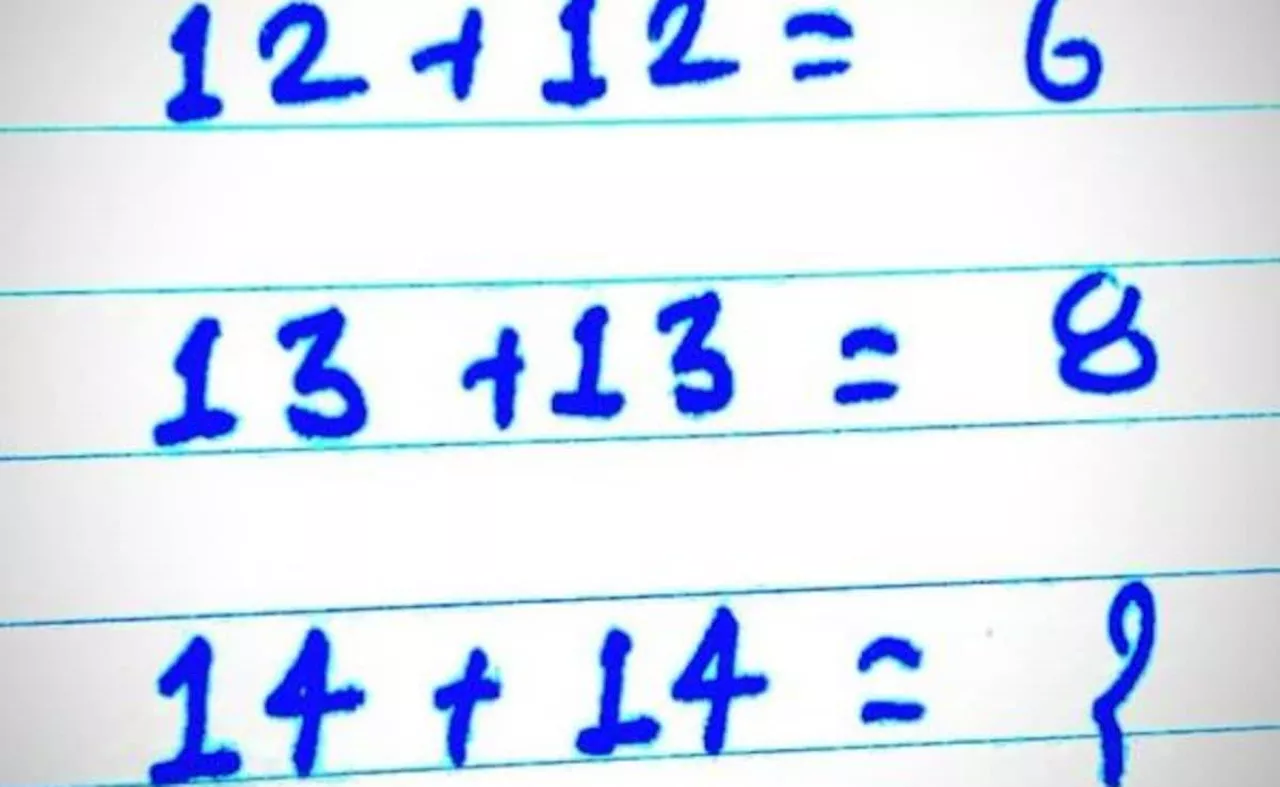 12+12= 6
13+13 = 8
14+14 = ?